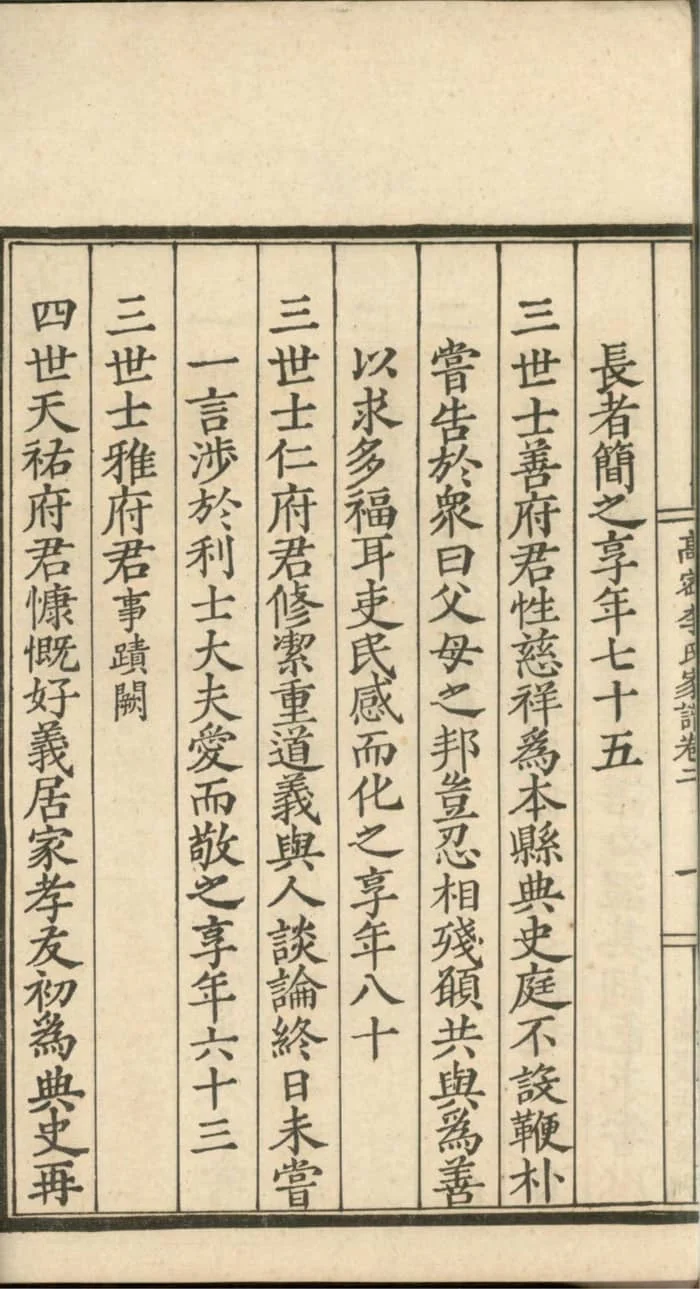 高密李氏家譜卷二
一
長者簡之享年七十五
三世士善府君性慈祥為本縣典史庭不設鞭朴
嘗告於衆曰父母之邦豈忍相殘願共與為善
以求多福耳吏民感而化之享年八十
三世士仁府君修潔重道義與人談論終日未嘗
一言涉於利士大夫愛而敬之享年六十三
三世士雅府君事蹟闕
四世天祐府君慷慨好義居家孝友初為典史再